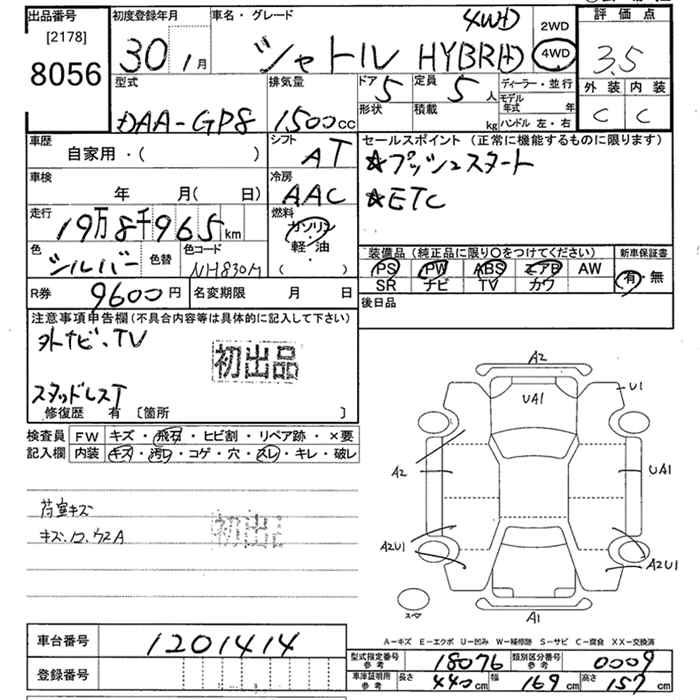 出品番号
[2178]
8056
初度登録年月
30 1月
車名・グレード
4WD
シャトル HYBRID
2WD
4WD
評価点
3.5
外装 内装
C C
型式
DAA-GP8
排気量
1500cc
ドア 5
形状
定員 5人
積載 kg
ディーラー・並行
モデル年式 年
ハンドル 左・右
車歴
自家用・( )
シフト
AT
セールスポイント (正常に機能するものに限ります)
☆プッシュスタート
☆ETC
車検
年 月( 日)
冷房
AAC
走行
19万8千965km
燃料
ガソリン
・
軽・油
( )
色
シルバー
色替
色コード
NH830M
装備品 (純正品に限り○をつけてください)
PS PW ABS エアB AW
SR ナビ TV カワ
新車保証書
有・無
R券 9600円
名変期限 月 日
後日品
注意事項申告欄(不具合内容等は具体的に記入して下さい)
外ナビ、TV
初出品
スタッドレスT
修復歴 有 〔箇所 〕
検査員
記入欄
FW キズ・飛石・ヒビ割・リペア跡・×要
内装 キズ・汚レ・コゲ・穴・スレ・キレ・破レ
荷室キズ
初出品
A2
UA1
U1
A2
UA1
A2U1
A2U1
スペア
A1
A-キズ E-エクボ U-凹み W-補修跡 S-サビ C-腐食 XX-交換済
車台番号
1201414
登録番号
型式指定番号
参考
18076
類別区分番号
参考
0009
車庫証明所
参考
長さ 440cm
幅 169cm
高さ 157cm